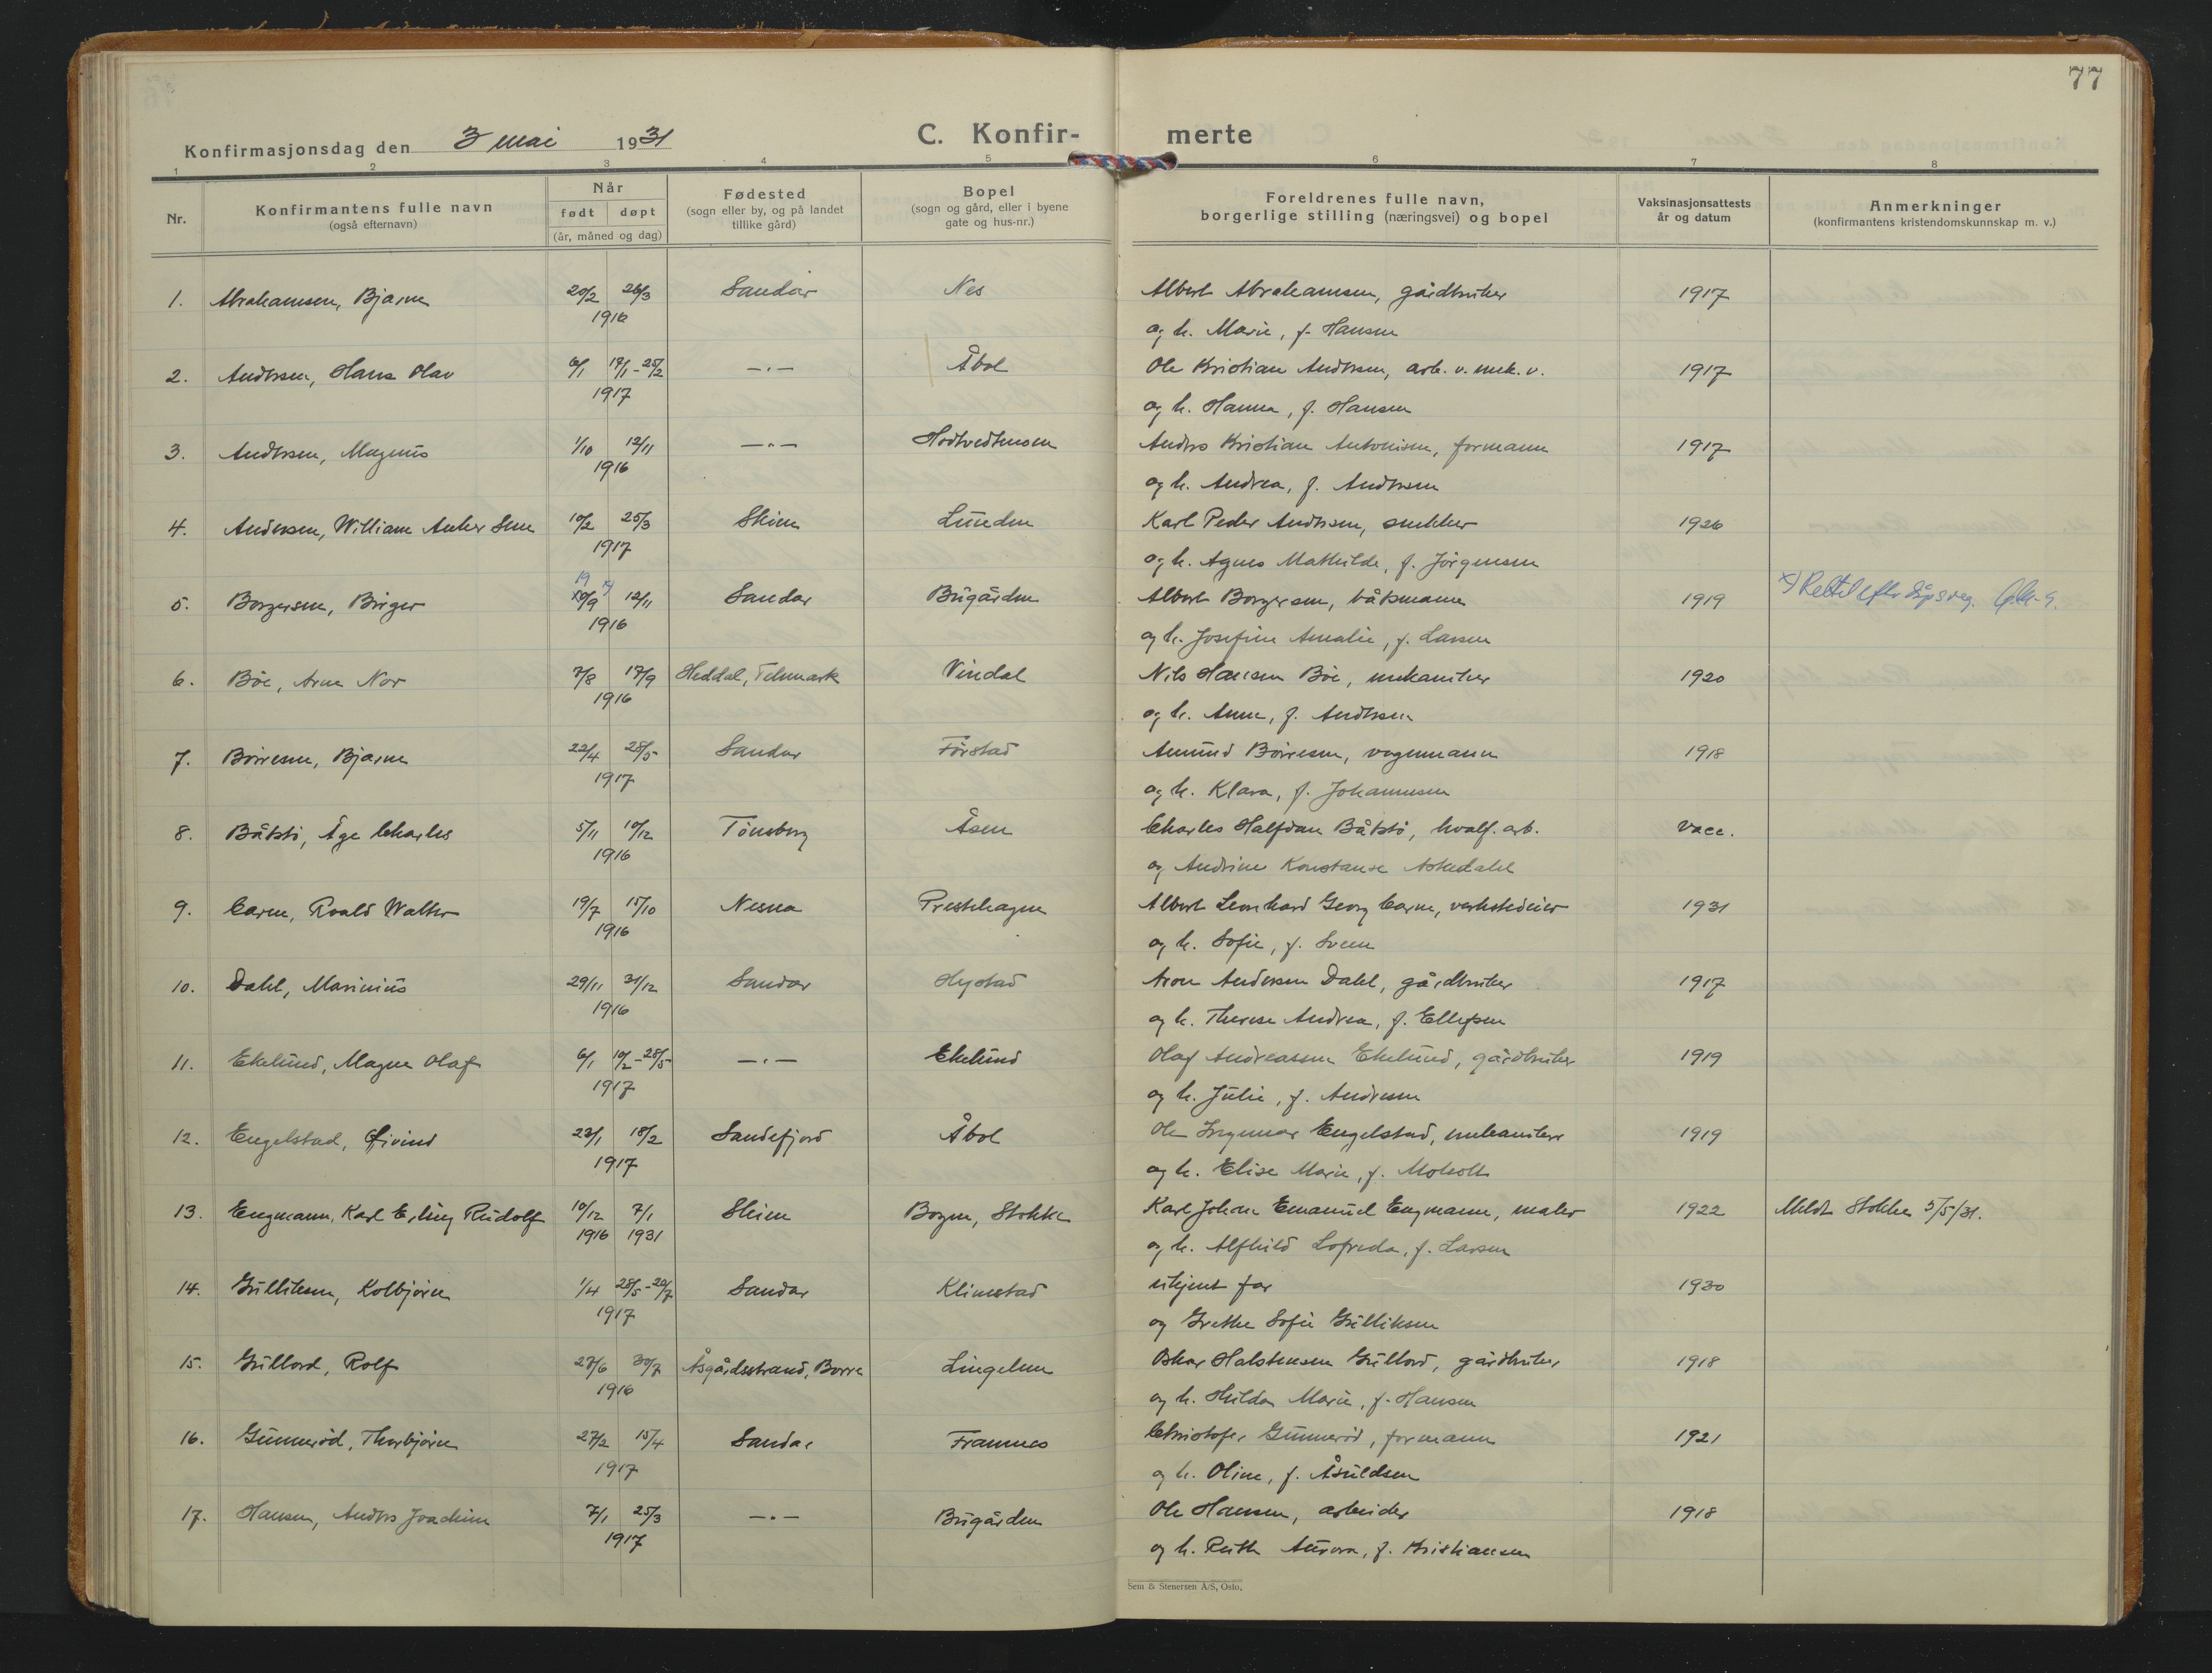 77
Konfirmasjonsdag den 3 mai 1931
C. Konfir- merte
1 2 3 4 5 6 7 8
Nr.
Konfirmantens fulle navn
(også efternavn)
Når
født døpt
(år, måned og dag)
Fødested
(sogn eller by, og på landet
tillike gård)
Bopel
(sogn og gård, eller i byene
gate og hus-nr.)
Foreldrenes fulle navn,
borgerlige stilling (næringsvei) og bopel
Vaksinasjonsattests
år og datum
Anmerkninger
(konfirmantens kristendomskunnskap m. v.)
1. Abrahamsen, Bjarne 20/2 26/3 Sandar Nes Albert Abrahamsen, gårdbruker 1917
1916 og h. Marie, f. Hansen
2. Andersen, Hans Olav 6/1 17/1-25/2 —"— Åbol Ole Kristian Andersen, arb. v. mek. v. 1917
1917 og h. Hanna, f. Hansen
3. Andersen, Magnus 1/10 12/11 —"— Hodtvedtmoen Anders Kristian Antonisen, formann 1917
1916 og h. Andrea, f. Andersen
4. Andersen, William Anker Sem 10/2 25/3 Skien Lunden Karl Peder Andersen, snekker 1926
1917 og h. Agnes Mathilde, f. Jörgensen
19
5. Borgersen, Birger 10/9 12/11 Sandar Bugården Albert Borgersen, båtsmann 1919 x) Rettet efter dåpsreg.
1916 og h. Josefine Amalie, f. Larsen
6. Böe, Arne Nor 7/8 17/9 Heddal, Telemark Vindal Nils Hansen Böe, mekaniker 1920
1916 og h. Anne, f. Andersen
7. Börresen, Bjarne 22/4 28/5 Sandar Förstad Amund Börresen, vognmann 1918
1917 og h. Klara, f. Johannesen
8. Båtstö, Åge Charles 5/11 10/12 Tönsberg Åsen Charles Halfdan Båtstö, hvalf. arb. vacc.
1916 og Andrine Konstanse Askedahl
9. Carm, Roald Walter 19/7 15/10 Nesna Presthagen Albert Leonhard Georg Carm, verkstedeier 1931
1916 og h. Sofie, f. Sveen
10. Dahl, Marinius 29/11 31/12 Sandar Hystad Aron Andersen Dahl, gårdbruker 1917
1916 og h. Therese Andrea, f. Ellefsen
11. Ekelund, Magne Olaf 6/1 10/2-28/5 —"— Ekelund Olaf Andreassen Ekelund, gårdbruker 1919
1917 og h. Julie, f. Andresen
12. Engelstad, Øivind 23/1 18/2 Sandefjord Åbol Ole Ingemar Engelstad, mekaniker 1919
1917 og h. Elise Marie, f. Moholt
13. Engmann, Karl Erling Rudolf 10/12 7/1 Skien Borgen, Stokke Karl Johan Emanuel Engmann, maler 1922 Meldt Stokke 5/5/31.
1916 1931 og h. Alfhild Lofreda, f. Larsen
14. Gulliksen, Kolbjörn 1/4 28/5-29/7 Sandar Klinestad ukjent far 1930
1917 og Grethe Sofie Gulliksen
15. Gullord, Rolf 27/6 30/7 Åsgårdstrand, Borre Lingelem Oskar Halstensen Gullord, gårdbruker 1918
1916 og h. Hilda Marie, f. Hansen
16. Gunneröd, Thorbjörn 27/2 15/4 Sandar Framnes Christofer Gunneröd, formann 1921
1917 og h. Oline, f. Åsuldsen
17. Hansen, Anders Joachim 7/1 25/3 —"— Bugården Ole Hansen, arbeider 1918
1917 og h. Ruth Aurora, f. Kristiansen
Sem & Stenersen A/S, Oslo.